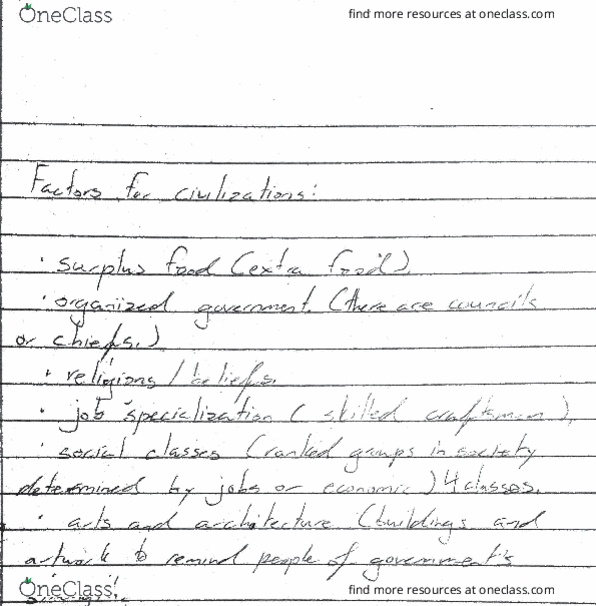 OneClass
find more resources at oneclass.com
Factors for civilizations:
· surplus food (extra food).
· organized government. (there are councils
or chiefs.)
· religions / beliefs.
· job specialization ( skilled craftsman ),
· social classes (ranked groups in society
determined by jobs or economic ) 4 classes.
· arts and architecture (buildings and
artwork to remind people of government's
OneClass
find more resources at oneclass.com